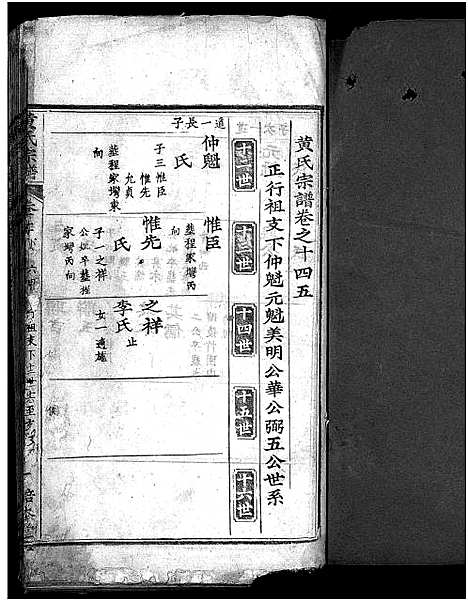 黃氏宗譜卷之十四五
正行祖支下仲魁元魁美明公華公弼五公世系
十二世
十三世
十四世
十五世
十六世
進一長子
仲魁
氏
子三惟臣
惟先
允貞
葬程家塆東
向
惟臣
葬程家塆丙
向
惟先
氏
子一之祥
公妣卒葬程
家塆丙向
之祥
李氏
止
女一適
黃氏宗譜